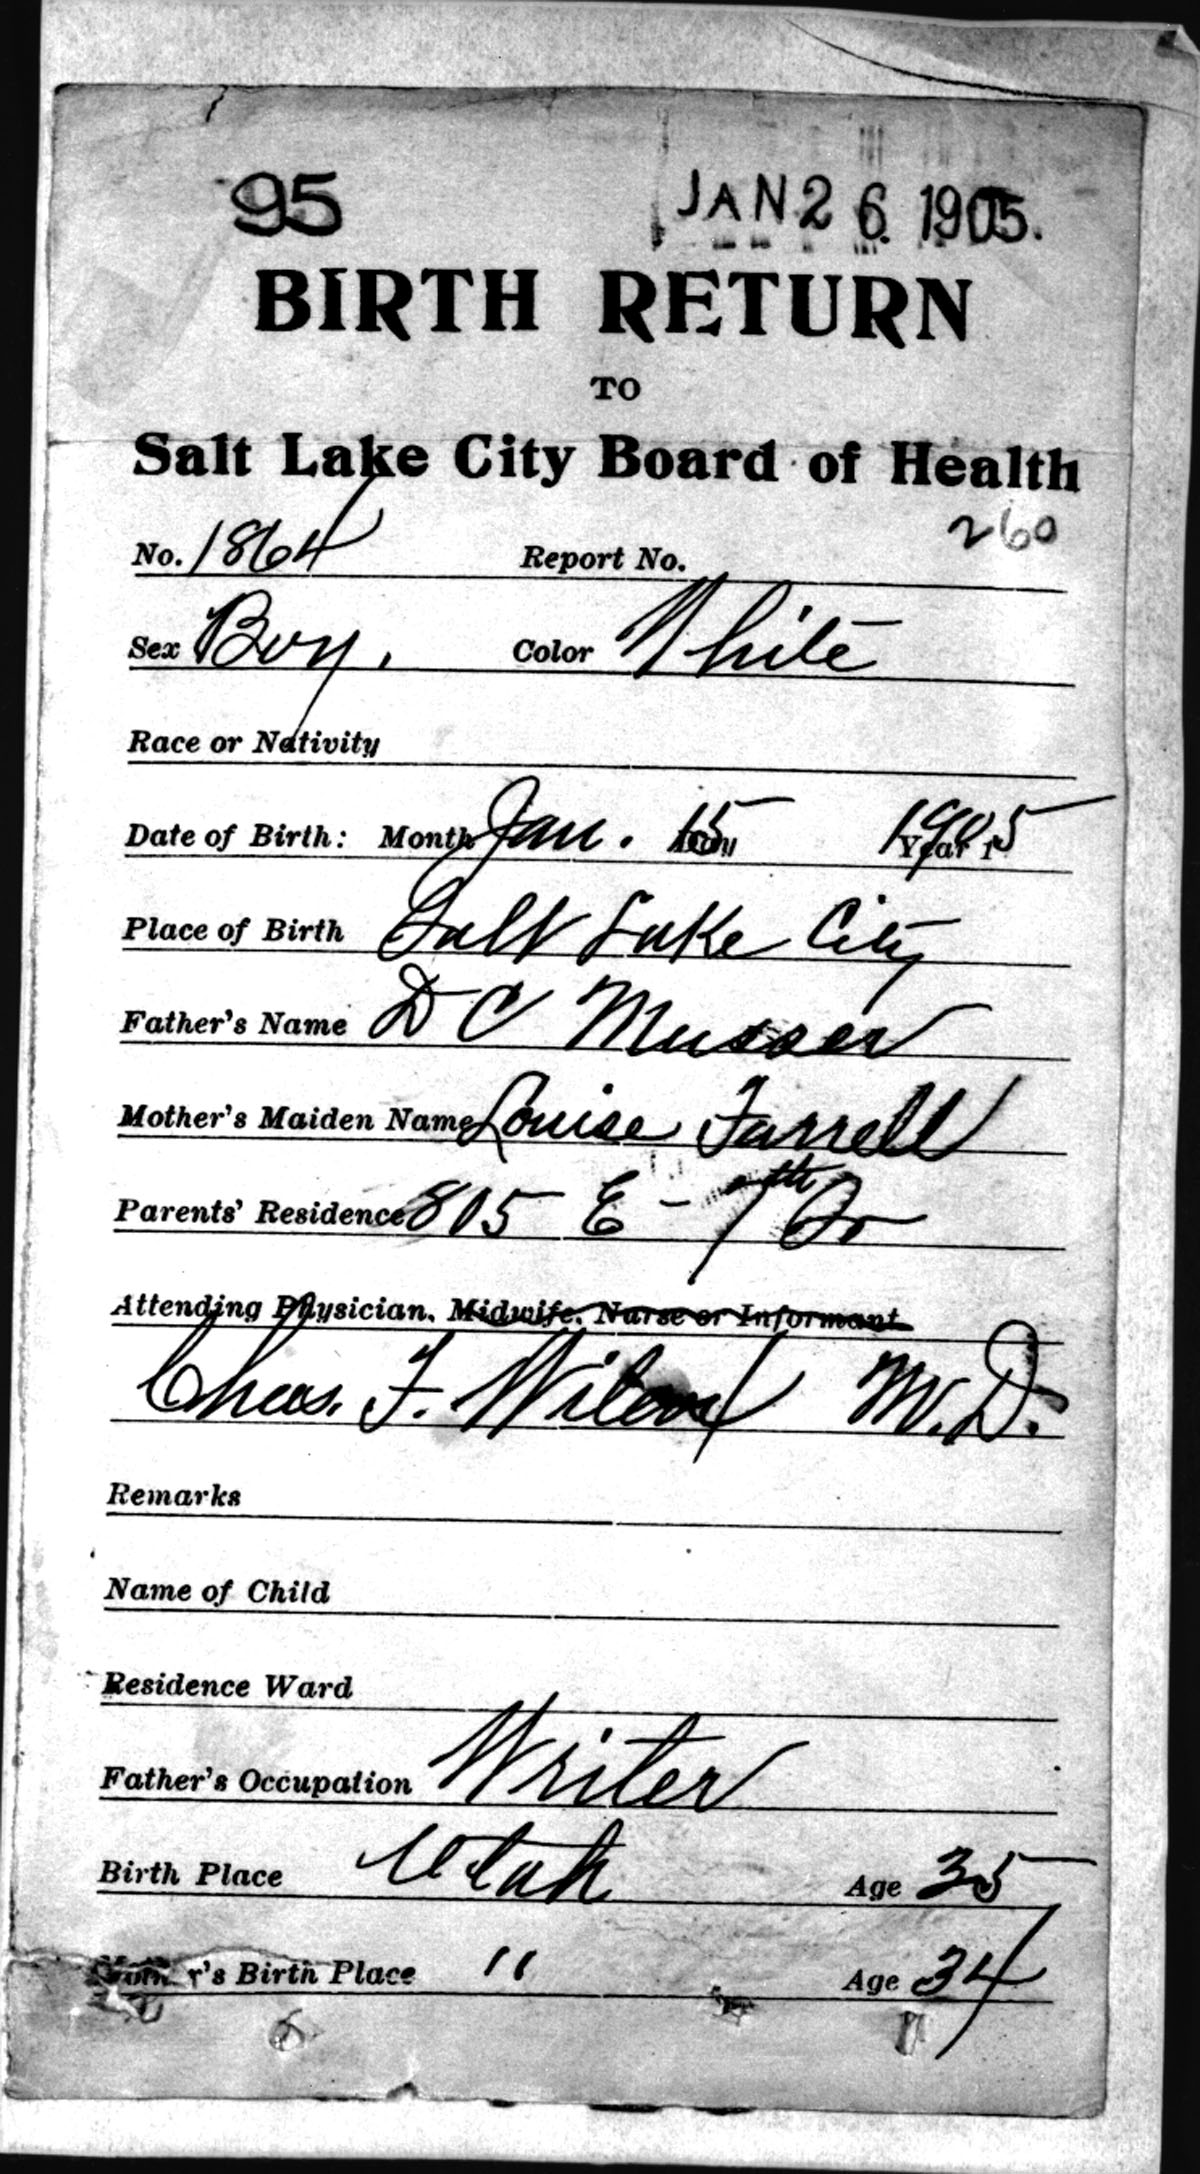 95 JAN 26 1905.
BIRTH RETURN
TO
Salt Lake City Board of Health
260
No. 1864 Report No.
Sex Boy. Color White
Race or Nativity
Date of Birth: Month Jan. Day 15 Year 1905
Place of Birth Salt Lake City
Father's Name D C Musser
Mother's Maiden Name Louise Farrell
Parents' Residence 805 E - 7th So
Attending Physician, Midwife, Nurse or Informant
Chas. F. Wilcox M.D.
Remarks
Name of Child
Residence Ward
Father's Occupation Writer
Birth Place Utah Age 35
Mother's Birth Place " Age 34